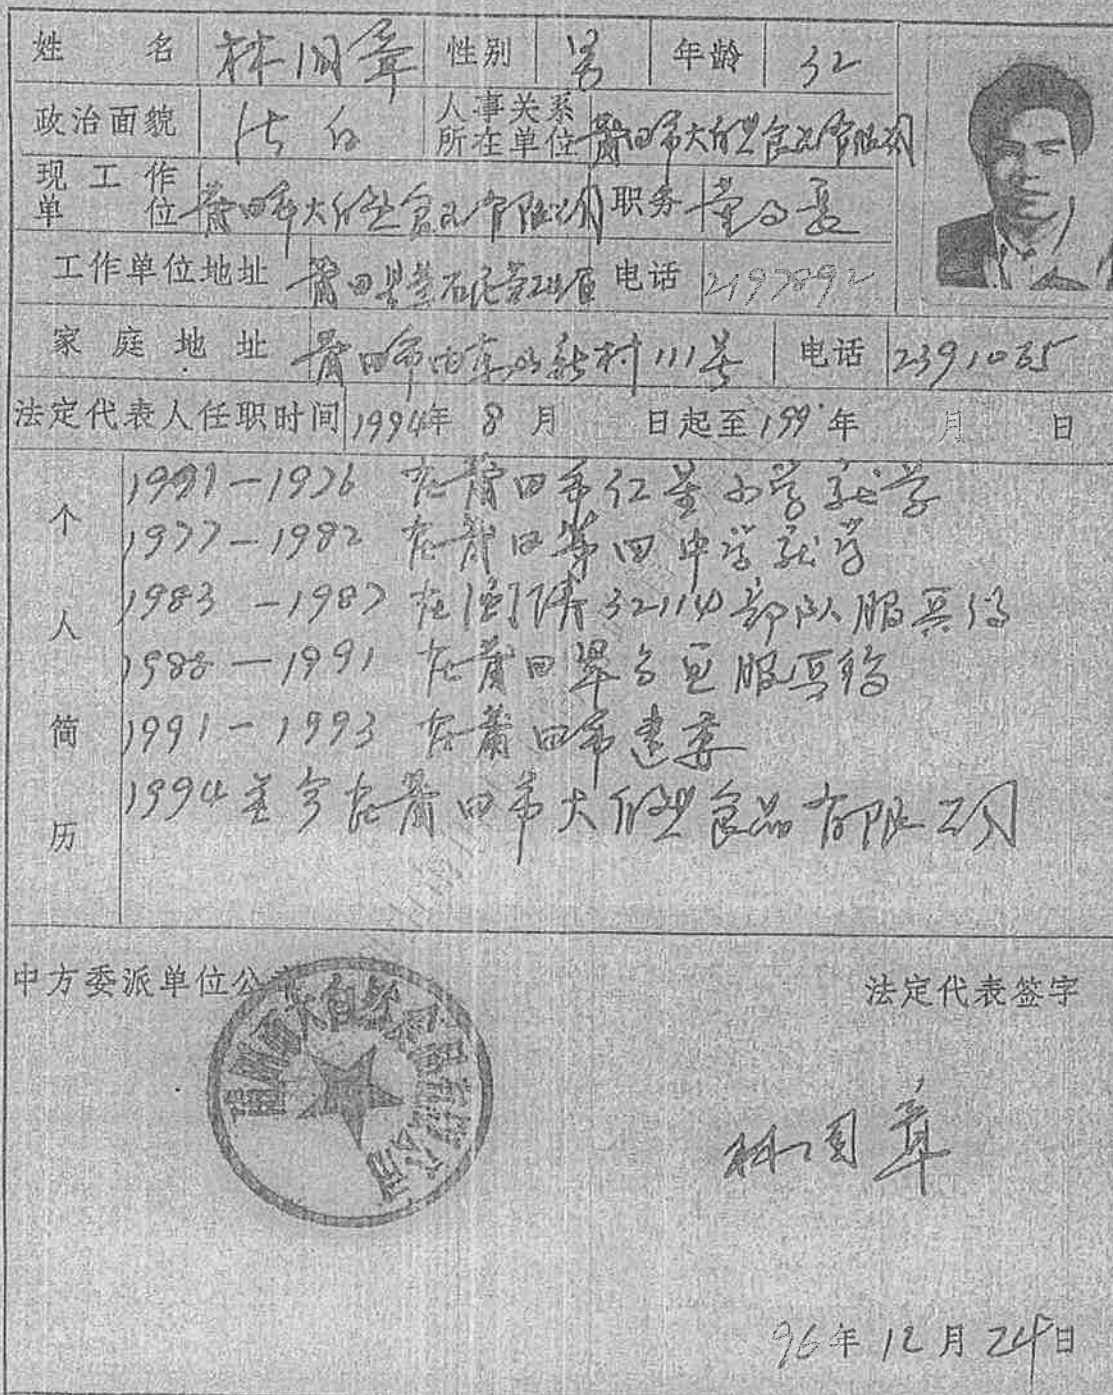 姓 名 林国章 性别 男 年龄 32
政治面貌 人事关系所在单位 莆田市大自然食品有限公司
现工作单位 莆田市大自然食品有限公司 职务 董事长
工作单位地址 莆田县黄石 电话 2197892
家庭地址 莆田市 新村111号 电话 2391065
法定代表人任职时间 1994年 8月 日起至199 年 月 日
个人简历
-1976 在莆田市 小学就学
1977-1982 在莆田第四中学就学
1983-1987 在 32114部队服兵役
1988-1991 在莆田 服兵役
1991-1993 在莆田市建委
1994至今在莆田市大自然食品有限公司
中方委派单位公章 法定代表签字
莆田市大自然食品有限公司
林国章
96年12月24日